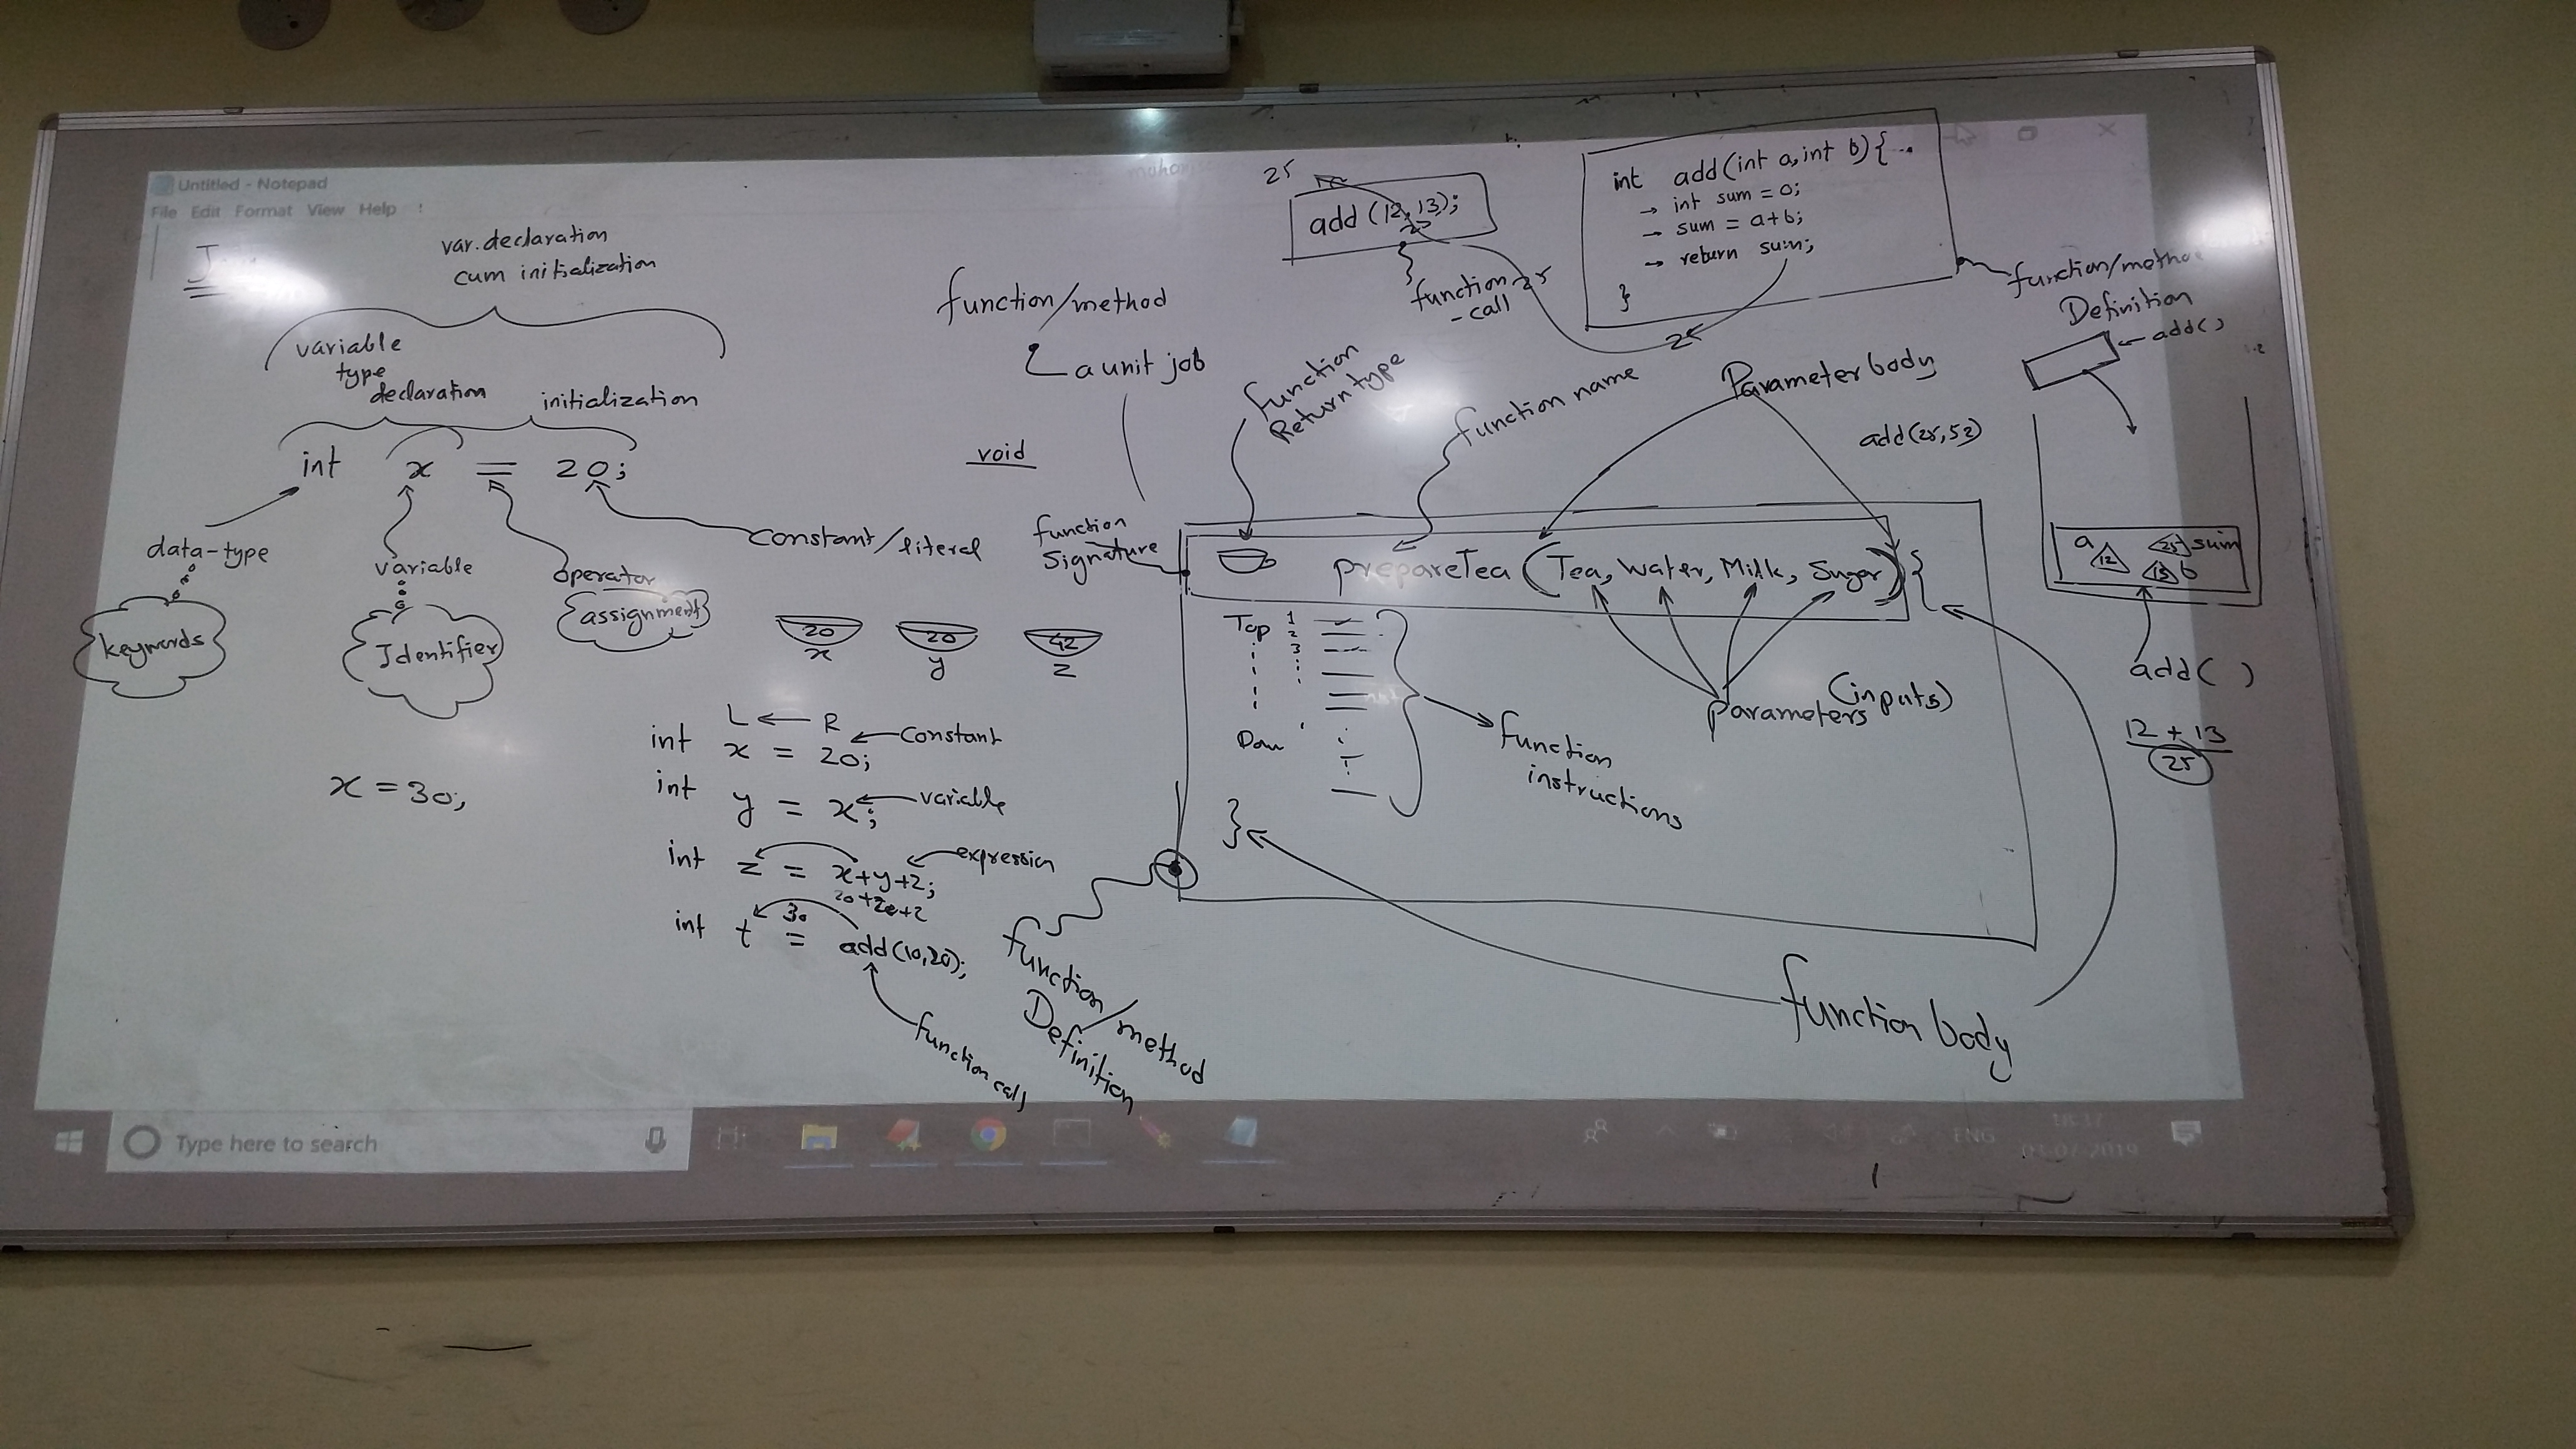 Untitled - Notepad
File Edit Format View Help
var. declaration
cum initialization
variable
type
declaration
initialization
int x = 20;
data-type
keywords
variable
Identifier
operator
assignment
constant/literal
x = 30;
20
x
20
y
42
z
L ← R
int x = 20;
constant
int y = x;
variable
int z = x+y+2;
expression
20+20+2
30
int t = add(10,20);
function call
function/method
a unit job
void
25
add (12,13);
25
function
- call
25
int add(int a, int b){
→ int sum = 0;
→ sum = a+b;
→ return sum;
}
function/method
Definition
add()
function
Return type
function name
Parameter body
add(25,52)
function
signature
prepareTea (Tea, Water, Milk, Sugar) {
Top
1
2
3
function
instructions
parameters
(inputs)
}
function/method
Definition
function body
a
12
25
sum
13
b
add( )
12 + 13
25
Type here to search
ENG